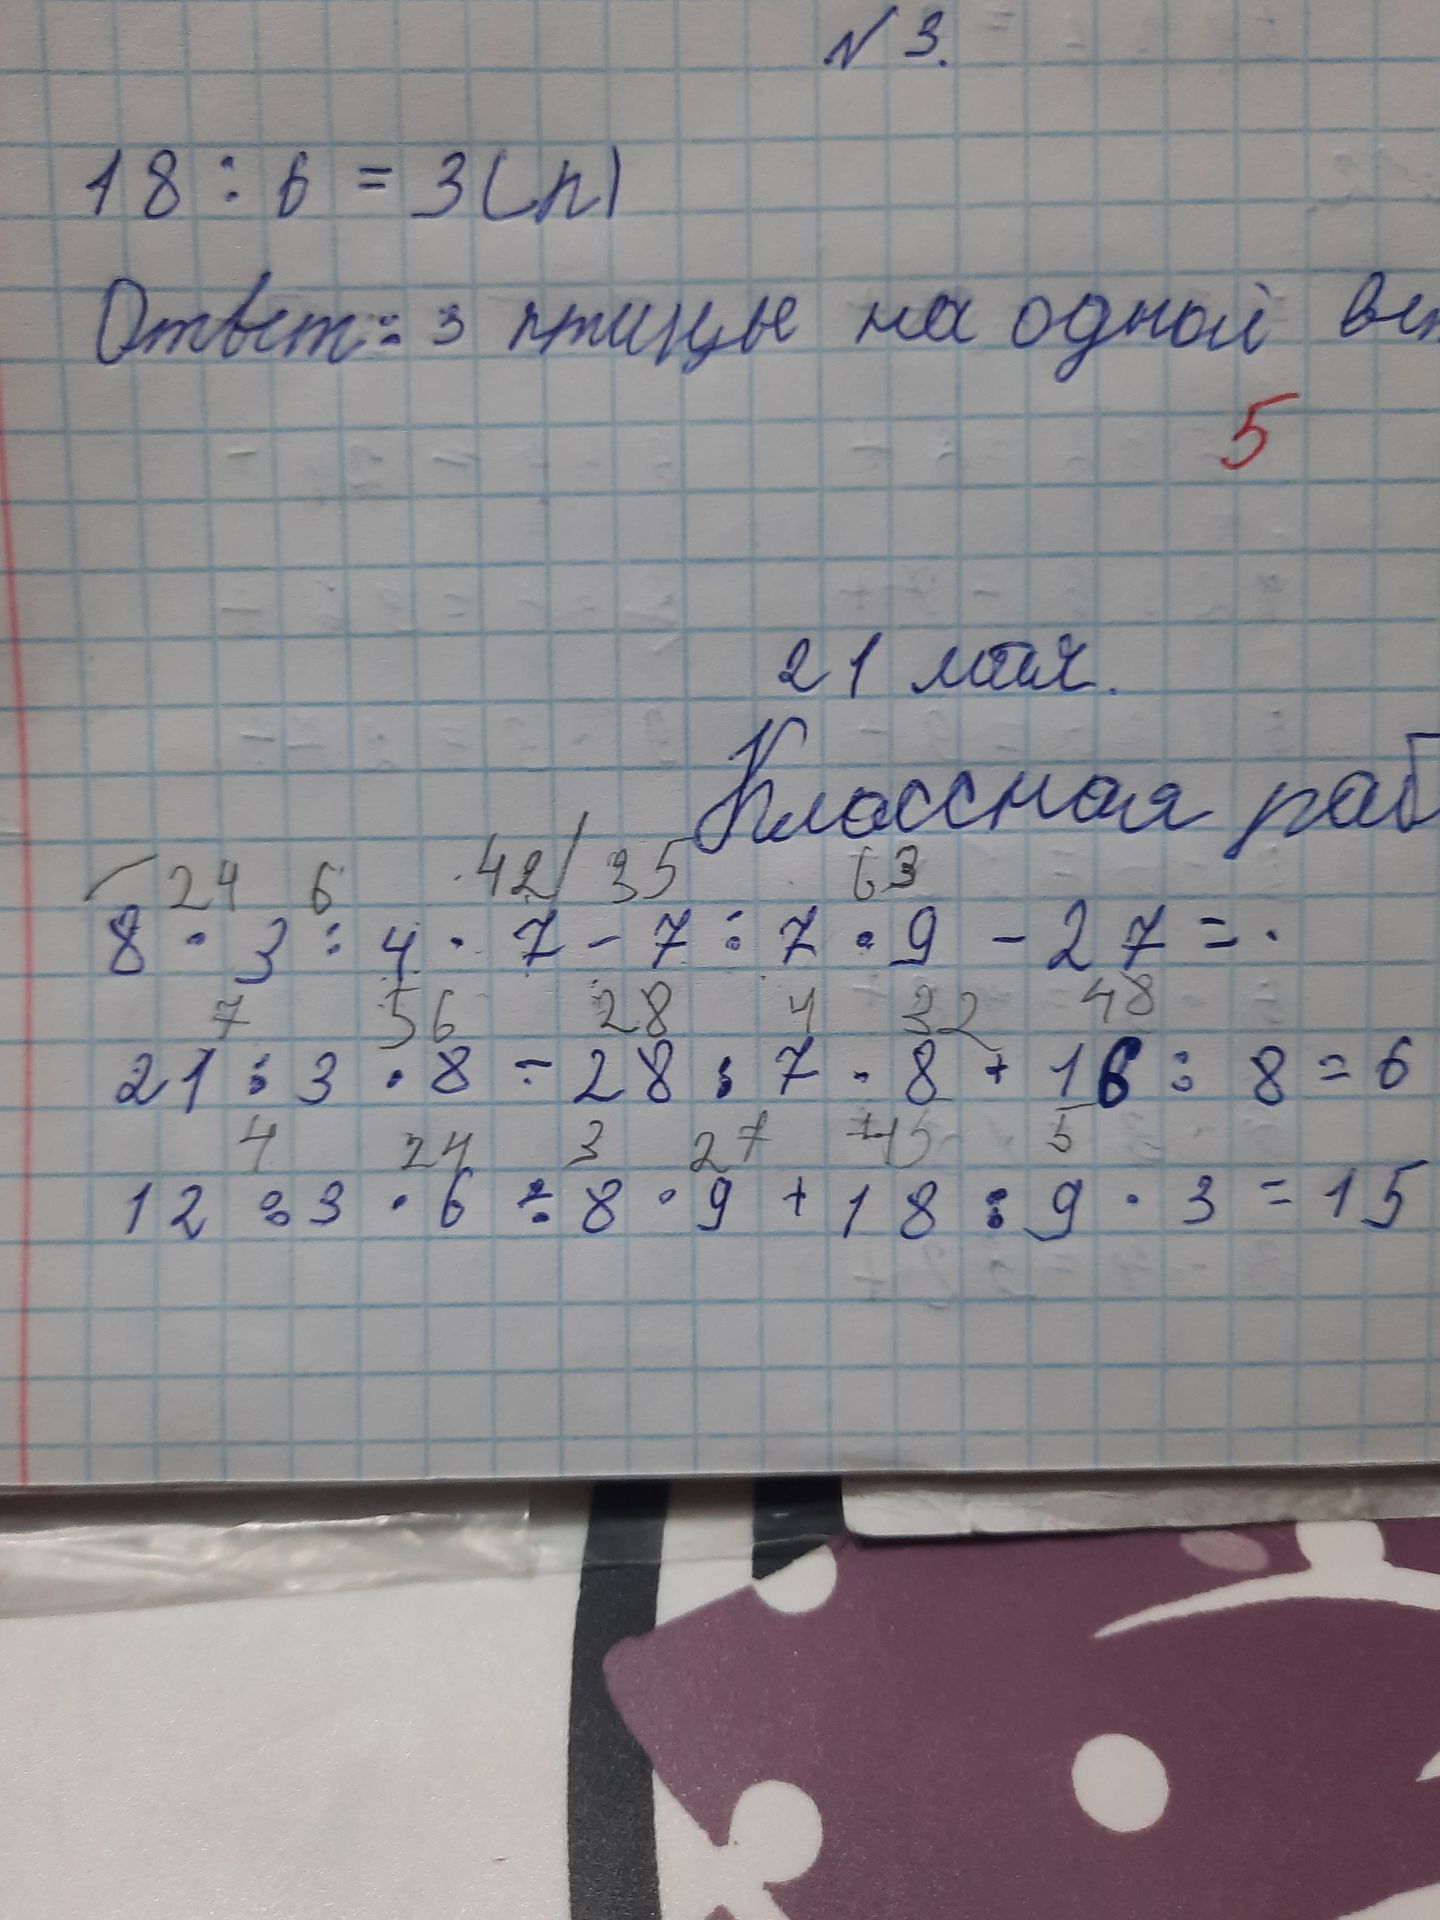 № 3.
18 : 6 = 3 (п)
Ответ: 3 птицы на одной
5
21 мая.
Классная раб
24 6 42 35 63
8 · 3 : 4 · 7 - 7 : 7 · 9 - 27 = ·
7 56 28 4 32 48
21 : 3 · 8 - 28 : 7 · 8 + 16 : 8 = 6
4 24 3 27 45 5
12 : 3 · 6 : 8 · 9 + 18 : 9 · 3 = 15